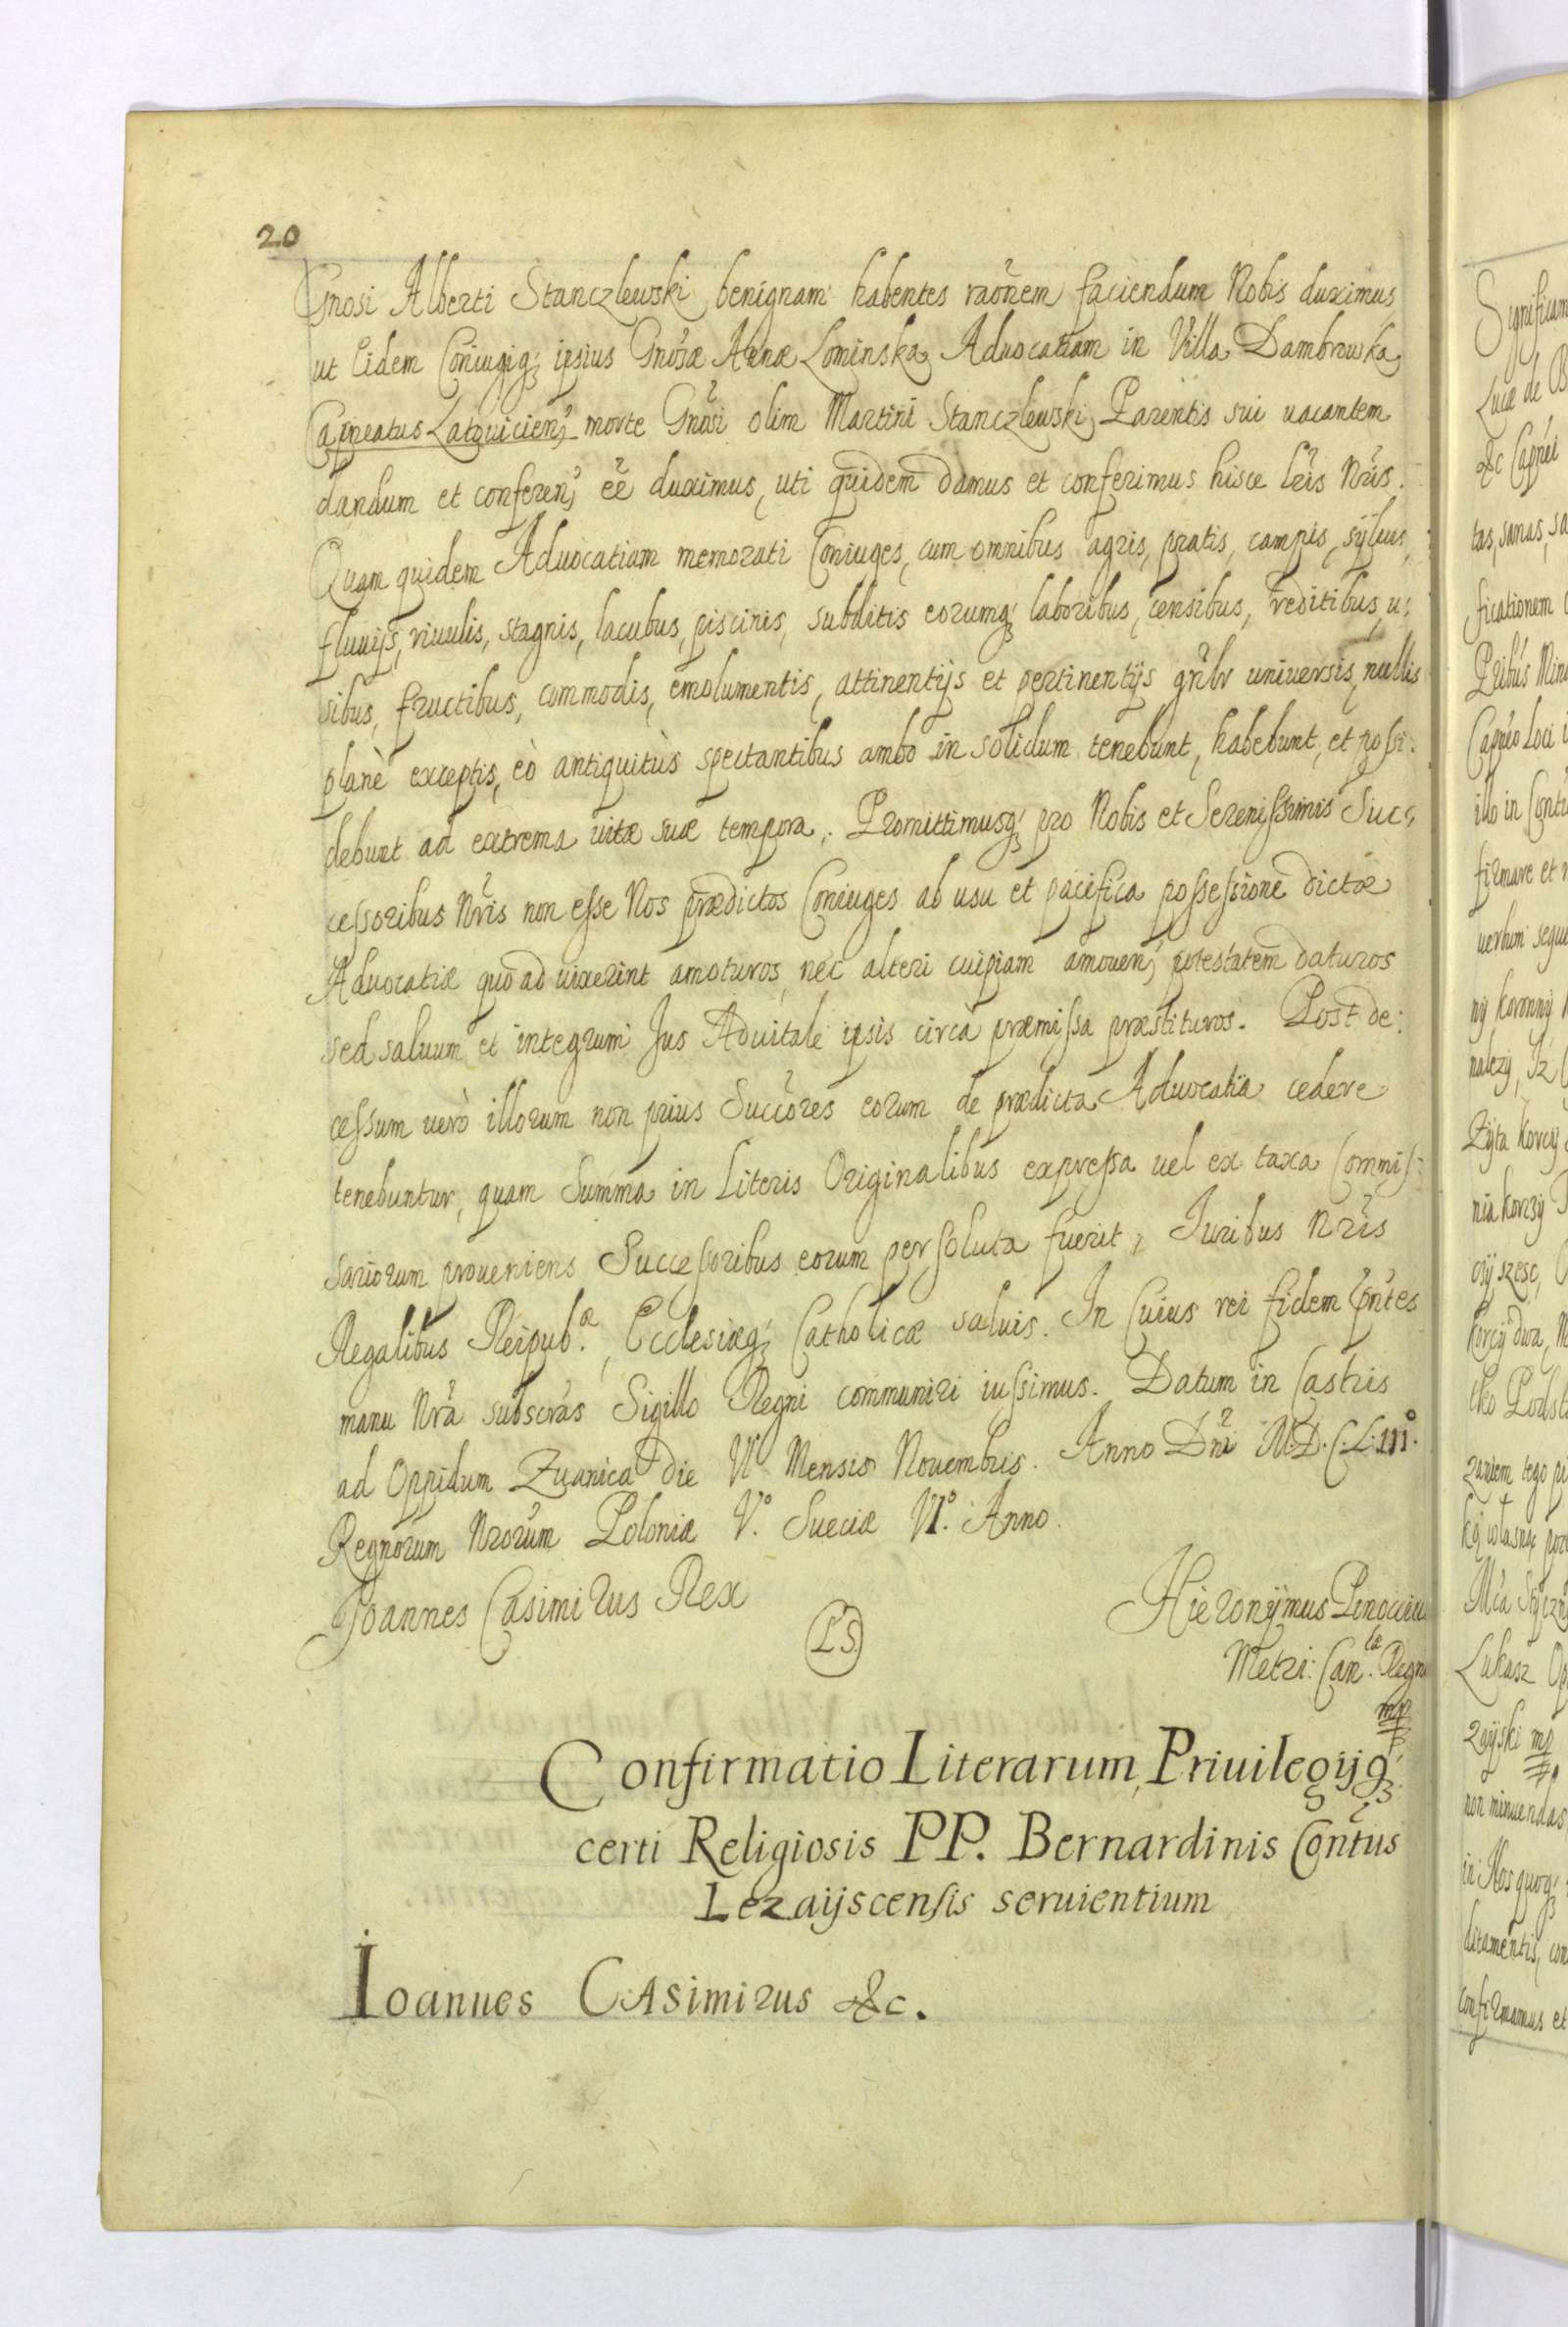 20
Gnosi Alberti Stanczlewski benignam habentes raõnem faciendum Nobis duximus
ut Eidem Coniugiq; ipsius Gnosæ Annæ Lominska Aduocatiam in Villa Dambrowka
Capneatus Latouicien; morte Gnosi olim Martini Stanczlewski Parentis sui uacantem
dandum et conferen; eẽ duximus, uti quidem damus et conferimus hisce lris Nris.
Quam quidem Aduocatiam memorati Coniuges, cum omnibus agris, pratis, campis, syluis,
fluuijs, riuulis, stagnis, lacubus, piscinis, subditis eorumq; laboribus, censibus, reditibus, u:
sibus, fructibus, commodis, emolumentis, attinentijs et pertinentijs gnlr uniuersis, nullis
planè exceptis, eò antiquitùs spectantibus ambo in solidum tenebunt, habebunt, et possi:
debunt ad extrema uitæ suæ tempora. Promittimusq; pro Nobis et Serenissimis Suc:
cessoribus Nris non esse Nos prædictos Coniuges ab usu et pacifica possessione dictæ
Aduocatiæ quo ad uixerint amoturos, nec alteri cuipiam amouen; potestatem daturos
sed saluum et integrum Jus Aduitale ipsis circa præmissa præstituros. Post de:
cessum uerò illorum non prius Succores eorum de prædicta Aduocatia cedere
tenebuntur, quam Summa in Literis Originalibus expressa uel ex taxa Commis:
sariorum proueniens Successoribus eorum persoluta fuerit, Iuribus Nris
Regalibus Reipub.æ, Ecclesiæq; Catholicæ saluis. In Cuius rei fidem pntes
manu Nra subscras Sigillo Regni communiri iussimus. Datum in Castris
ad Oppidum Zuanica die VI Mensis Nouembris. Anno Dni M.D.C.L.III.º
Regnorum Nrorum Poloniæ V.º Sueciæ VI.º Anno.
Joannes Casimirus Rex
L S.
Hieronymus Pinoccius
Metri: Can.læ Regni
mp
Confirmatio Literarum, Priuilegijq;
certi Religiosis PP. Bernardinis Contus
Lezaijscensis seruientium
Ioannes Casimirus &c.
Significam
Lucæ de B
&c Capnei
tas, sanas, sa
ficationem
Pribus Mino
Capneo Loci i
illo in Contu
firmare et r
uerbum sequi
ny koronny
nalezy, Iz
Zyta korcy
nia korzy
korcy dwa, M
tko Podsta
zaniem tego pi
ką własną pore
Łukasz Op
mp
non minuendas
in Nos quoq;
ditamentis, con
confirmamus et